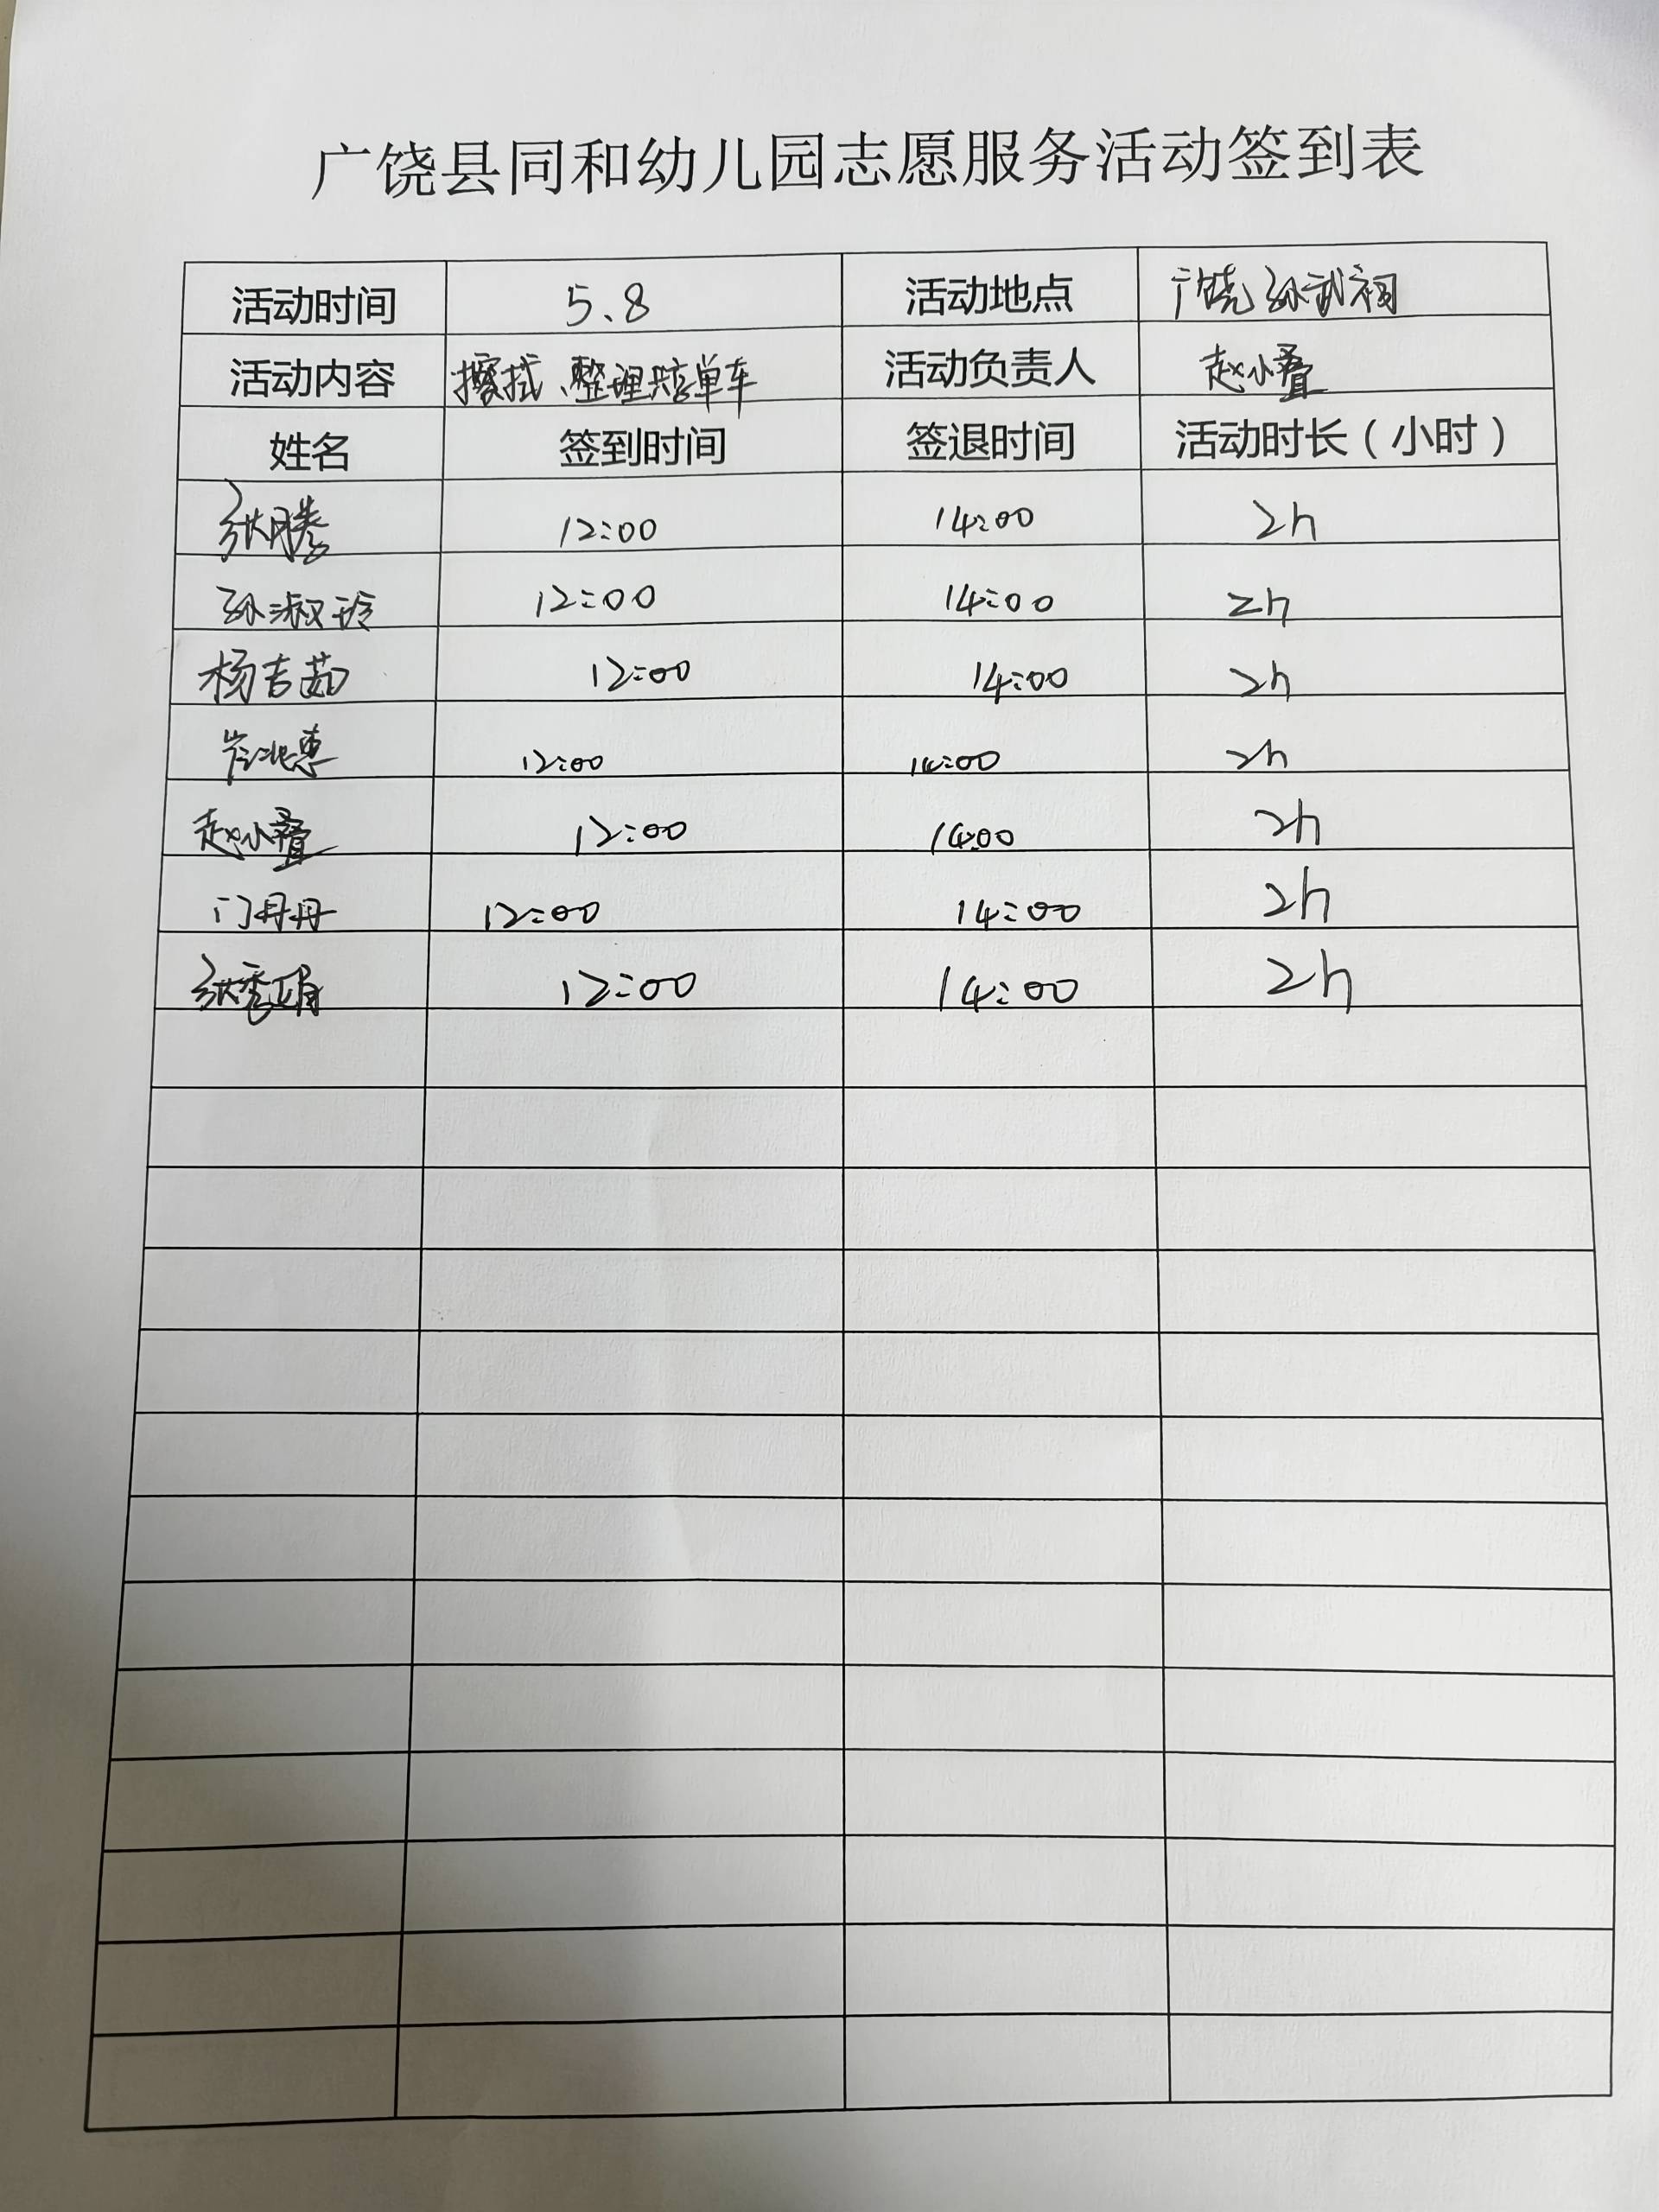 广饶县同和幼儿园志愿服务活动签到表
活动时间 5.8 活动地点 广饶孙武祠
活动内容 擦拭、整理共享单车 活动负责人 赵小叠
姓名 签到时间 签退时间 活动时长（小时）
张腾 12:00 14:00 2h
孙淑玲 12:00 14:00 2h
杨吉茹 12:00 14:00 2h
12:00 14:00 2h
赵小叠 12:00 14:00 2h
门丹丹 12:00 14:00 2h
张秀娟 12:00 14:00 2h